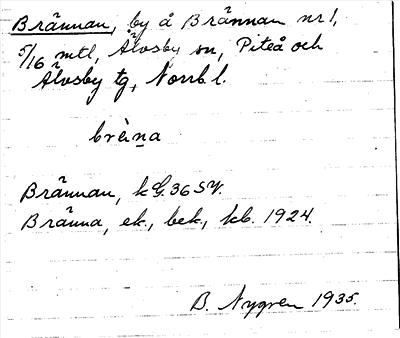 Brännan, by å Brännan nr 1,
5/16 mtl, Älvsby sn, Piteå och
Älvsby tg, Norrb. l.
brèṉa
Brännan, kG. 36 SV.
Bränna, ek., bek., kb. 1924.
B. Nygren 1935.